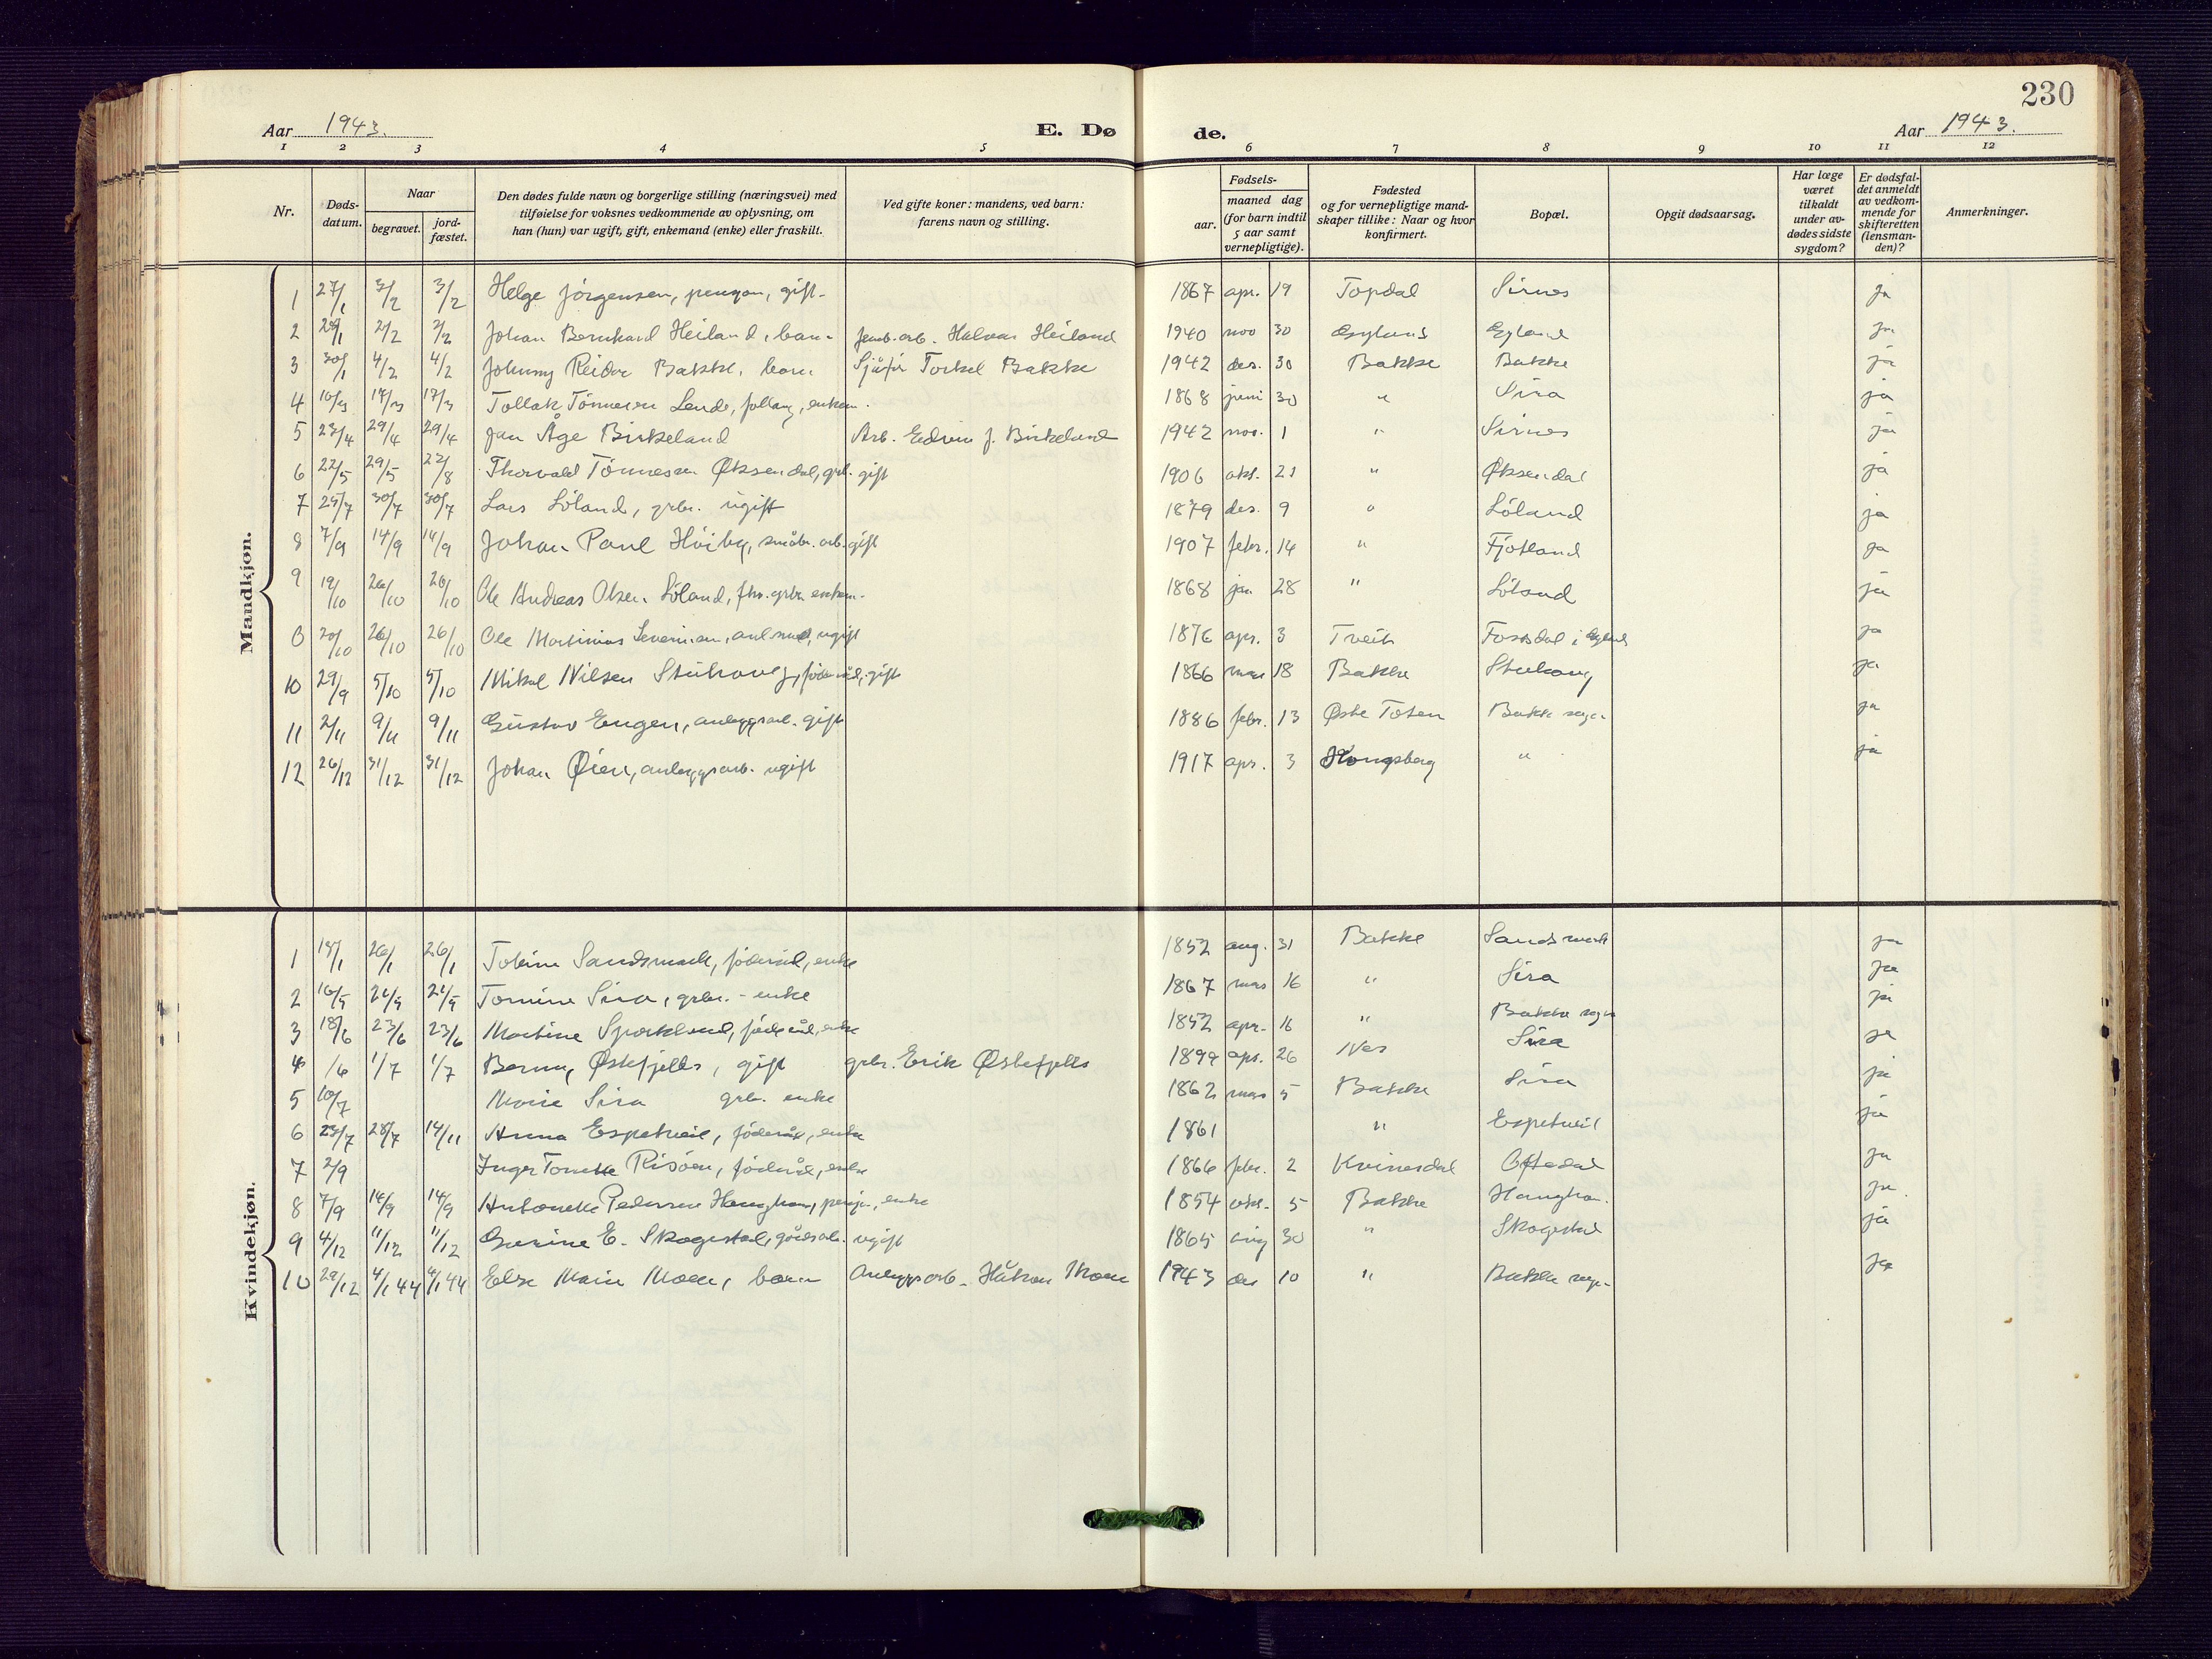 230
Aar 1943.
E. Dø de.
Aar 1943.
1 2 3 4 5 6 7 8 9 10 11 12
Nr.
Døds-
datum.
Naar
begravet.
jord-
fæstet.
Den dødes fulde navn og borgerlige stilling (næringsvei) med
tilføielse for voksnes vedkommende av oplysning, om
han (hun) var ugift, gift, enkemand (enke) eller fraskilt.
Ved gifte koner: mandens, ved barn:
farens navn og stilling.
Fødsels-
aar.
maaned dag
(for barn indtil
5 aar samt
vernepligtige).
Fødested
og for vernepligtige mand-
skaper tillike: Naar og hvor
konfirmert.
Bopæl.
Opgit dødsaarsag.
Har læge
været
tilkaldt
under av-
dødes sidste
sygdom?
Er dødsfal-
det anmeldt
av vedkom-
mende for
skifteretten
(lensman-
den)?
Anmerkninger.
Mandkjøn.
1 27/1 3/2 3/2 Helge Jörgensen, pensjon, gift. 1867 apr. 19 Topdal Sirnes ja
2 29/1 2/2 2/2 Johan Bernhard Heiland, barn jernb.arb. Halvar Heiland 1940 nov 30 Gyland Gyland ja
3 30/1 4/2 4/2 Johnny Reidar Bakke, barn Sjåfør Torkel Bakke 1942 des. 30 Bakke Bakke ja
4 10/3 17/3 17/3 Tollak Tönnesen Lende, enkem. 1868 juni 30 " Sira ja
5 23/4 29/4 29/4 Jan Åge Birkeland Arb. Edvin J. Birkeland 1942 nov. 1 " Sirnes ja
6 22/5 29/5 22/8 Thorvald Tönnesen Øksendal, grb. gift 1906 okt. 21 " Øksendal ja
7 25/7 30/7 30/7 Lars Löland, grbr. ugift 1879 des. 9 " Löland ja
8 7/9 14/9 14/9 Johan Paul Höiby, småbr. arb. gift 1907 febr. 14 " Fjotland ja
9 19/10 26/10 26/10 Ole Andreas Olsen Löland, fhv. grbr. enkem. 1868 jan 28 " Löland ja
0 20/10 26/10 26/10 Ole Martinius Severinsen, ugift 1876 apr. 3 Tveit Fossdal i Gyland ja
10 29/9 5/10 5/10 Mikal Nilsen Stuhaug, föderåd, gift 1866 mars 18 Bakke Stuhaug ja
11 2/11 9/11 9/11 Gustav Engen, anleggsarb. gift 1886 febr. 13 Østre Toten Bakke sogn ja
12 26/12 31/12 31/12 Johan Øien, anleggsarb. ugift 1917 apr. 3 Kongsberg " ja
Kvindekjøn.
1 19/1 26/1 26/1 Tobine Sandsmark, föderåd, enke 1852 aug. 31 Bakke Sandsmark ja
2 16/5 21/5 21/5 Tomine Sira, grbr.-enke 1867 mars 16 " Sira ja
3 18/6 23/6 23/6 Martine Sporkland, föderåd, enke 1852 apr. 16 " Bakke sogn ja
4 /6 1/7 1/7 Berny Østefjells, gift grbr. Erik Østefjells 1899 apr. 26 Nes Sira ja
5 10/7 Marie Sira grb. enke 1862 mars 5 Bakke Sira ja
6 23/7 28/7 14/11 Anna Espetveit, föderåd, enke 1861 " Espetveit ja
7 2/9 Inger Tomette Risöen, föderåd, enke 1866 febr. 2 Kvinesdal Oftedal ja
8 7/9 14/9 14/9 Antonette Pedersen Haughom, pensj., enke 1854 okt. 5 Bakke Haughom. ja.
9 4/12 11/12 11/12 Gurine E. Skogestad, gårdsarb. ugift 1865 aug 30 " Skogestad ja
10 29/12 4/1 44 4/1 44 Else Marie Moen, barn Anleggsarb. Håkon Moen 1943 des 10 " Bakke sogn ja